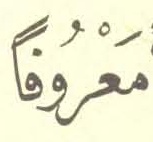 مَعْرُوفًا